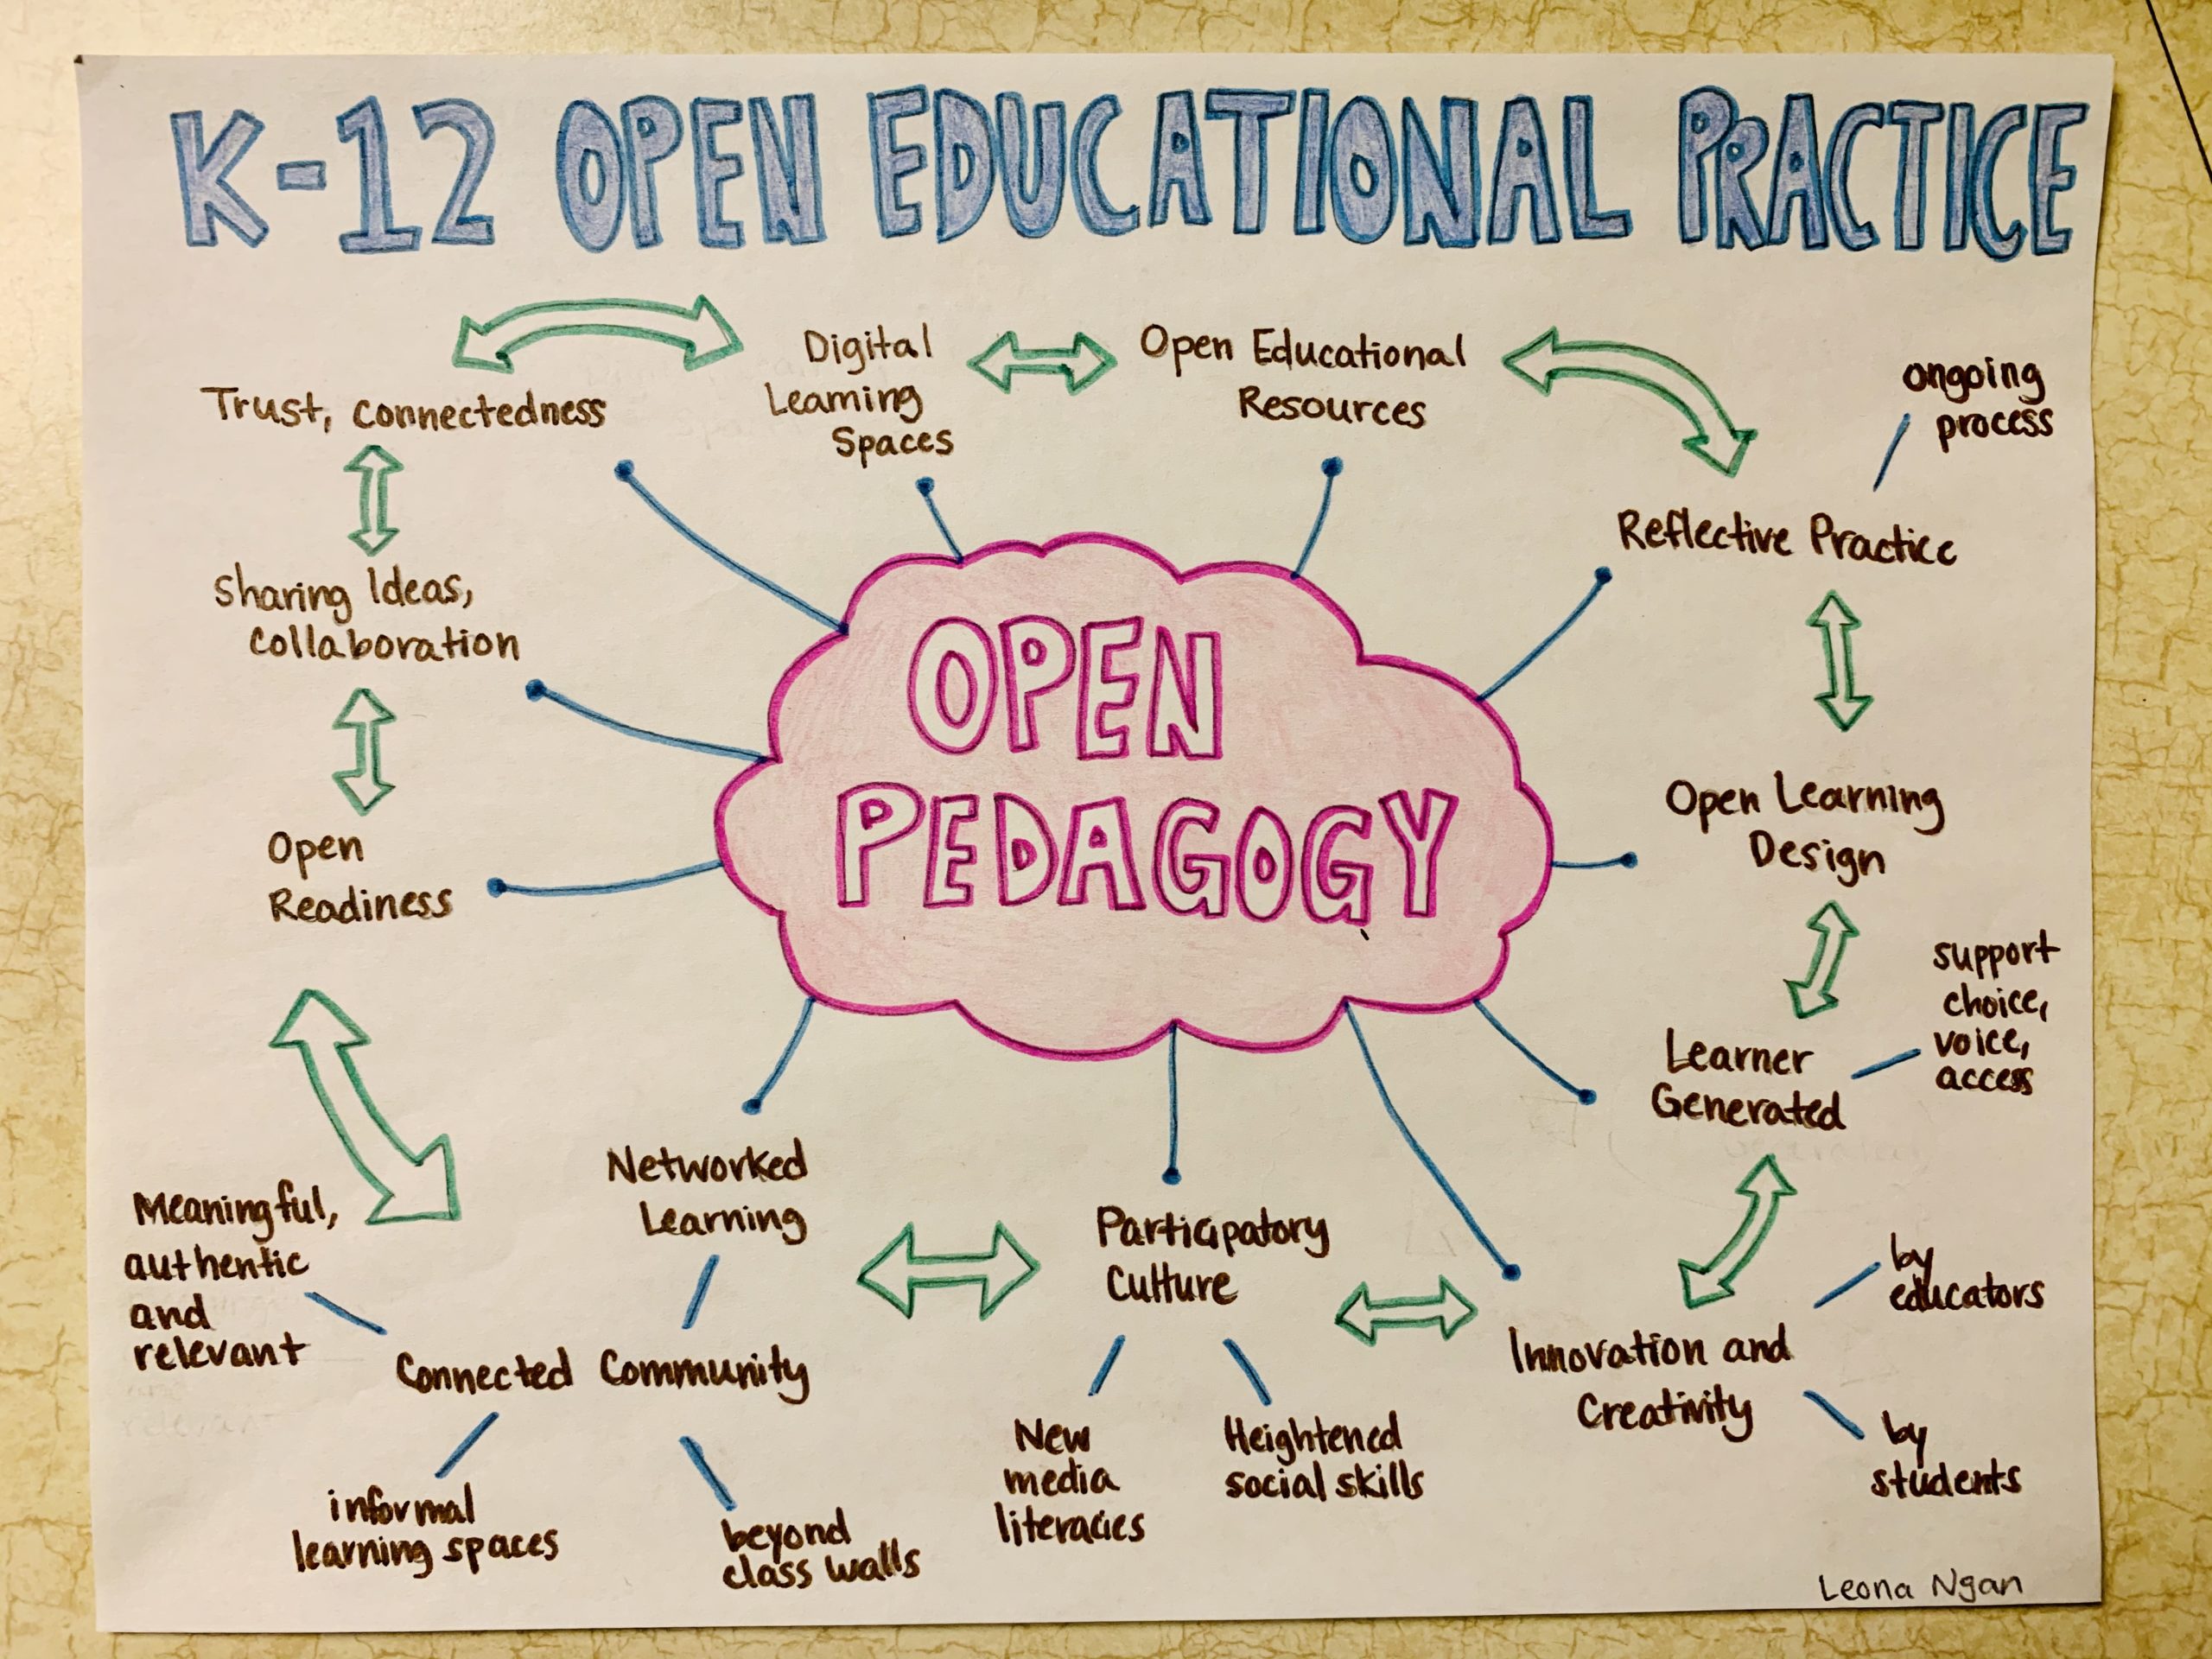 K-12 OPEN EDUCATIONAL PRACTICE
Trust, connectedness
Digital
Learning
Spaces
Open Educational
Resources
ongoing
process
Reflective Practice
Sharing Ideas,
collaboration
OPEN
PEDAGOGY
Open Learning
Design
Open
Readiness
support
choice,
voice,
access
Learner
Generated
Networked
Learning
Meaningful,
authentic
and
relevant
Connected Community
informal
learning spaces
beyond
class walls
Participatory
Culture
New
media
literacies
Heightened
social skills
Innovation and
Creativity
by
educators
by
students
Leona Ngan